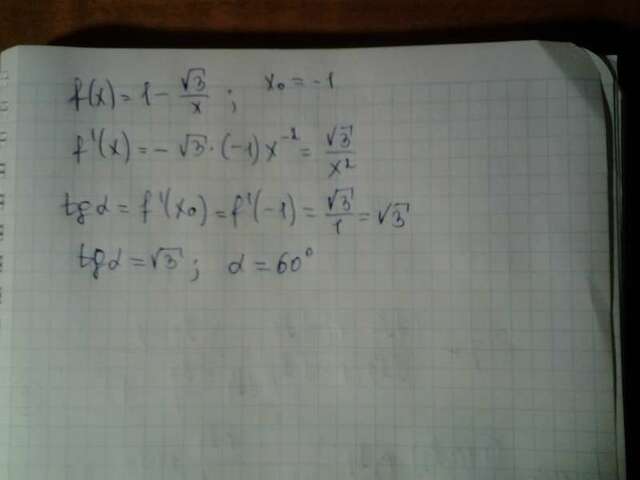 f(x) = 1 - √3/x ; x₀ = -1
f'(x) = - √3 · (-1) x⁻² = √3/x²
tg α = f'(x₀) = f'(-1) = √3/1 = √3
tg α = √3 ; α = 60°